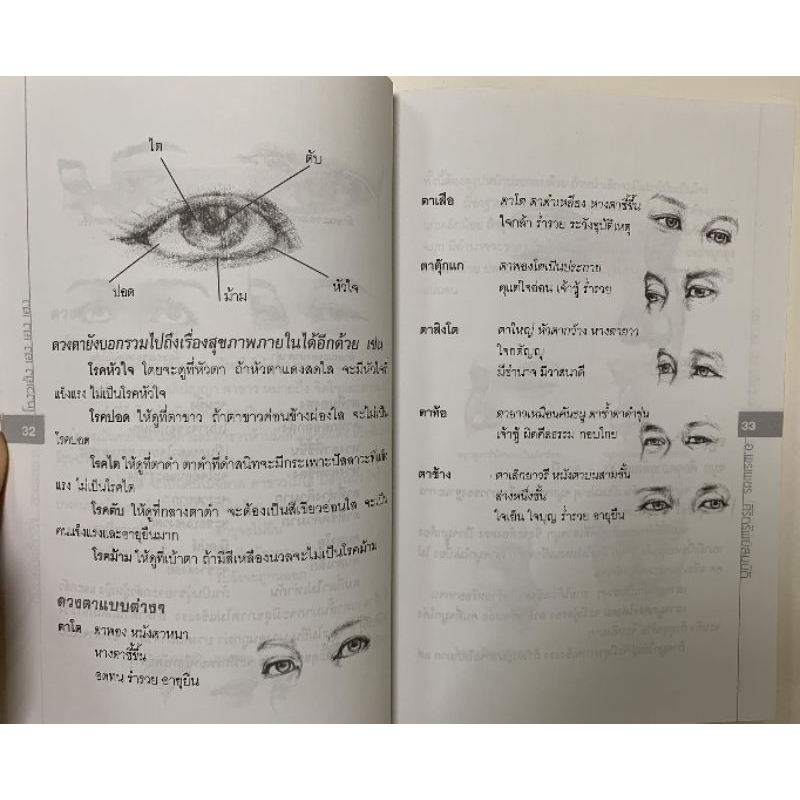 ไต
ตับ
ปอด
ม้าม
หัวใจ
ดวงตายังบอกรวมไปถึงเรื่องสุขภาพภายในได้อีกด้วย เช่น
โรคหัวใจ โดยจะดูที่หัวตา ถ้าหัวตาแดงสดใส จะมีหัวใจที่
แข็งแรง ไม่เป็นโรคหัวใจ
โรคปอด ให้ดูที่ตาขาว ถ้าตาขาวค่อนข้างผ่องใส จะไม่เป็น
โรคปอด
โรคไต ให้ดูที่ตาดำ ตาดำที่ดำสนิทจะมีกระเพาะปัสสาวะที่แข็ง
แรง ไม่เป็นโรคไต
โรคตับ ให้ดูที่กลางตาดำ จะต้องเป็นสีเขียวอ่อนใส จะเป็น
คนแข็งแรงและอายุยืนมาก
โรคม้าม ให้ดูที่เบ้าตา ถ้ามีสีเหลืองนวลจะไม่เป็นโรคม้าม
ดวงตาแบบต่างๆ
ตาโต ตาพอง หนังตาหนา
หางตาชี้ขึ้น
อดทน ร่ำรวย อายุยืน
32
ตาเสือ ตาโต ตาดำเหลือง หางตาชี้ขึ้น
ใจกล้า ร่ำรวย ระวังอุบัติเหตุ
ตาตุ๊กแก ตาพองโตเป็นประกาย
ดุแต่ใจอ่อน เจ้าชู้ ร่ำรวย
ตาสิงโต ตาใหญ่ หัวตากว้าง หางตายาว
ใจกตัญญู
มีอำนาจ มีวาสนาดี
ตาห้อ ตายาวเหมือนคันธนู ตาช้ำตาดำขุ่น
เจ้าชู้ ผิดศีลธรรม กอบโกย
ตาช้าง ตาเล็กยาวรี หนังตาบนสามชั้น
ล่างหนึ่งชั้น
ใจเย็น ใจบุญ ร่ำรวย อายุยืน
33